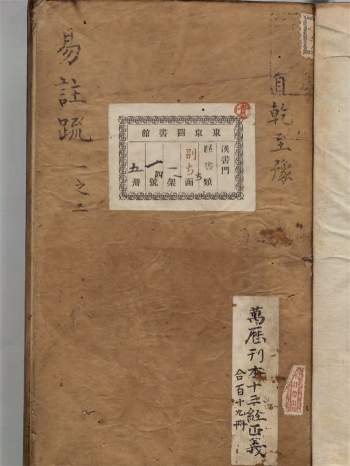 自乾至豫
易註疏
之二
東京圖書館
漢書門
類
別ち
函
一架
一四號
五冊
萬曆刊本十三經正義
合百十九冊